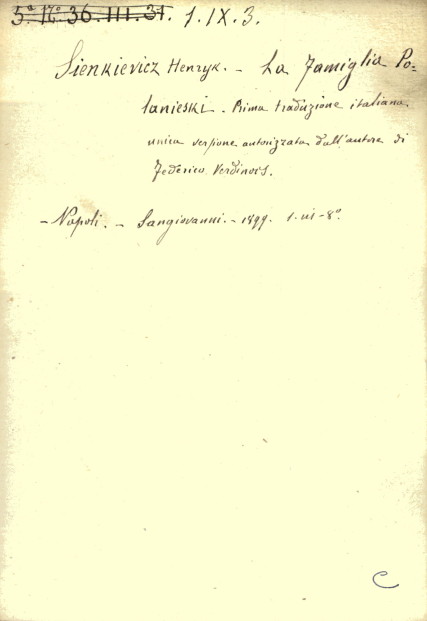 5ª 12ª 36. III. 31. 1. IX. 3.
Sienkievicz Henryk. - La Famiglia Po=
lanieski. Prima traduzione italiana.
unica versione autorizzata dall'autore di
Federico Verdinois.
- Napoli. - Sangiovanni. - 1899. 1. in-8º.
C